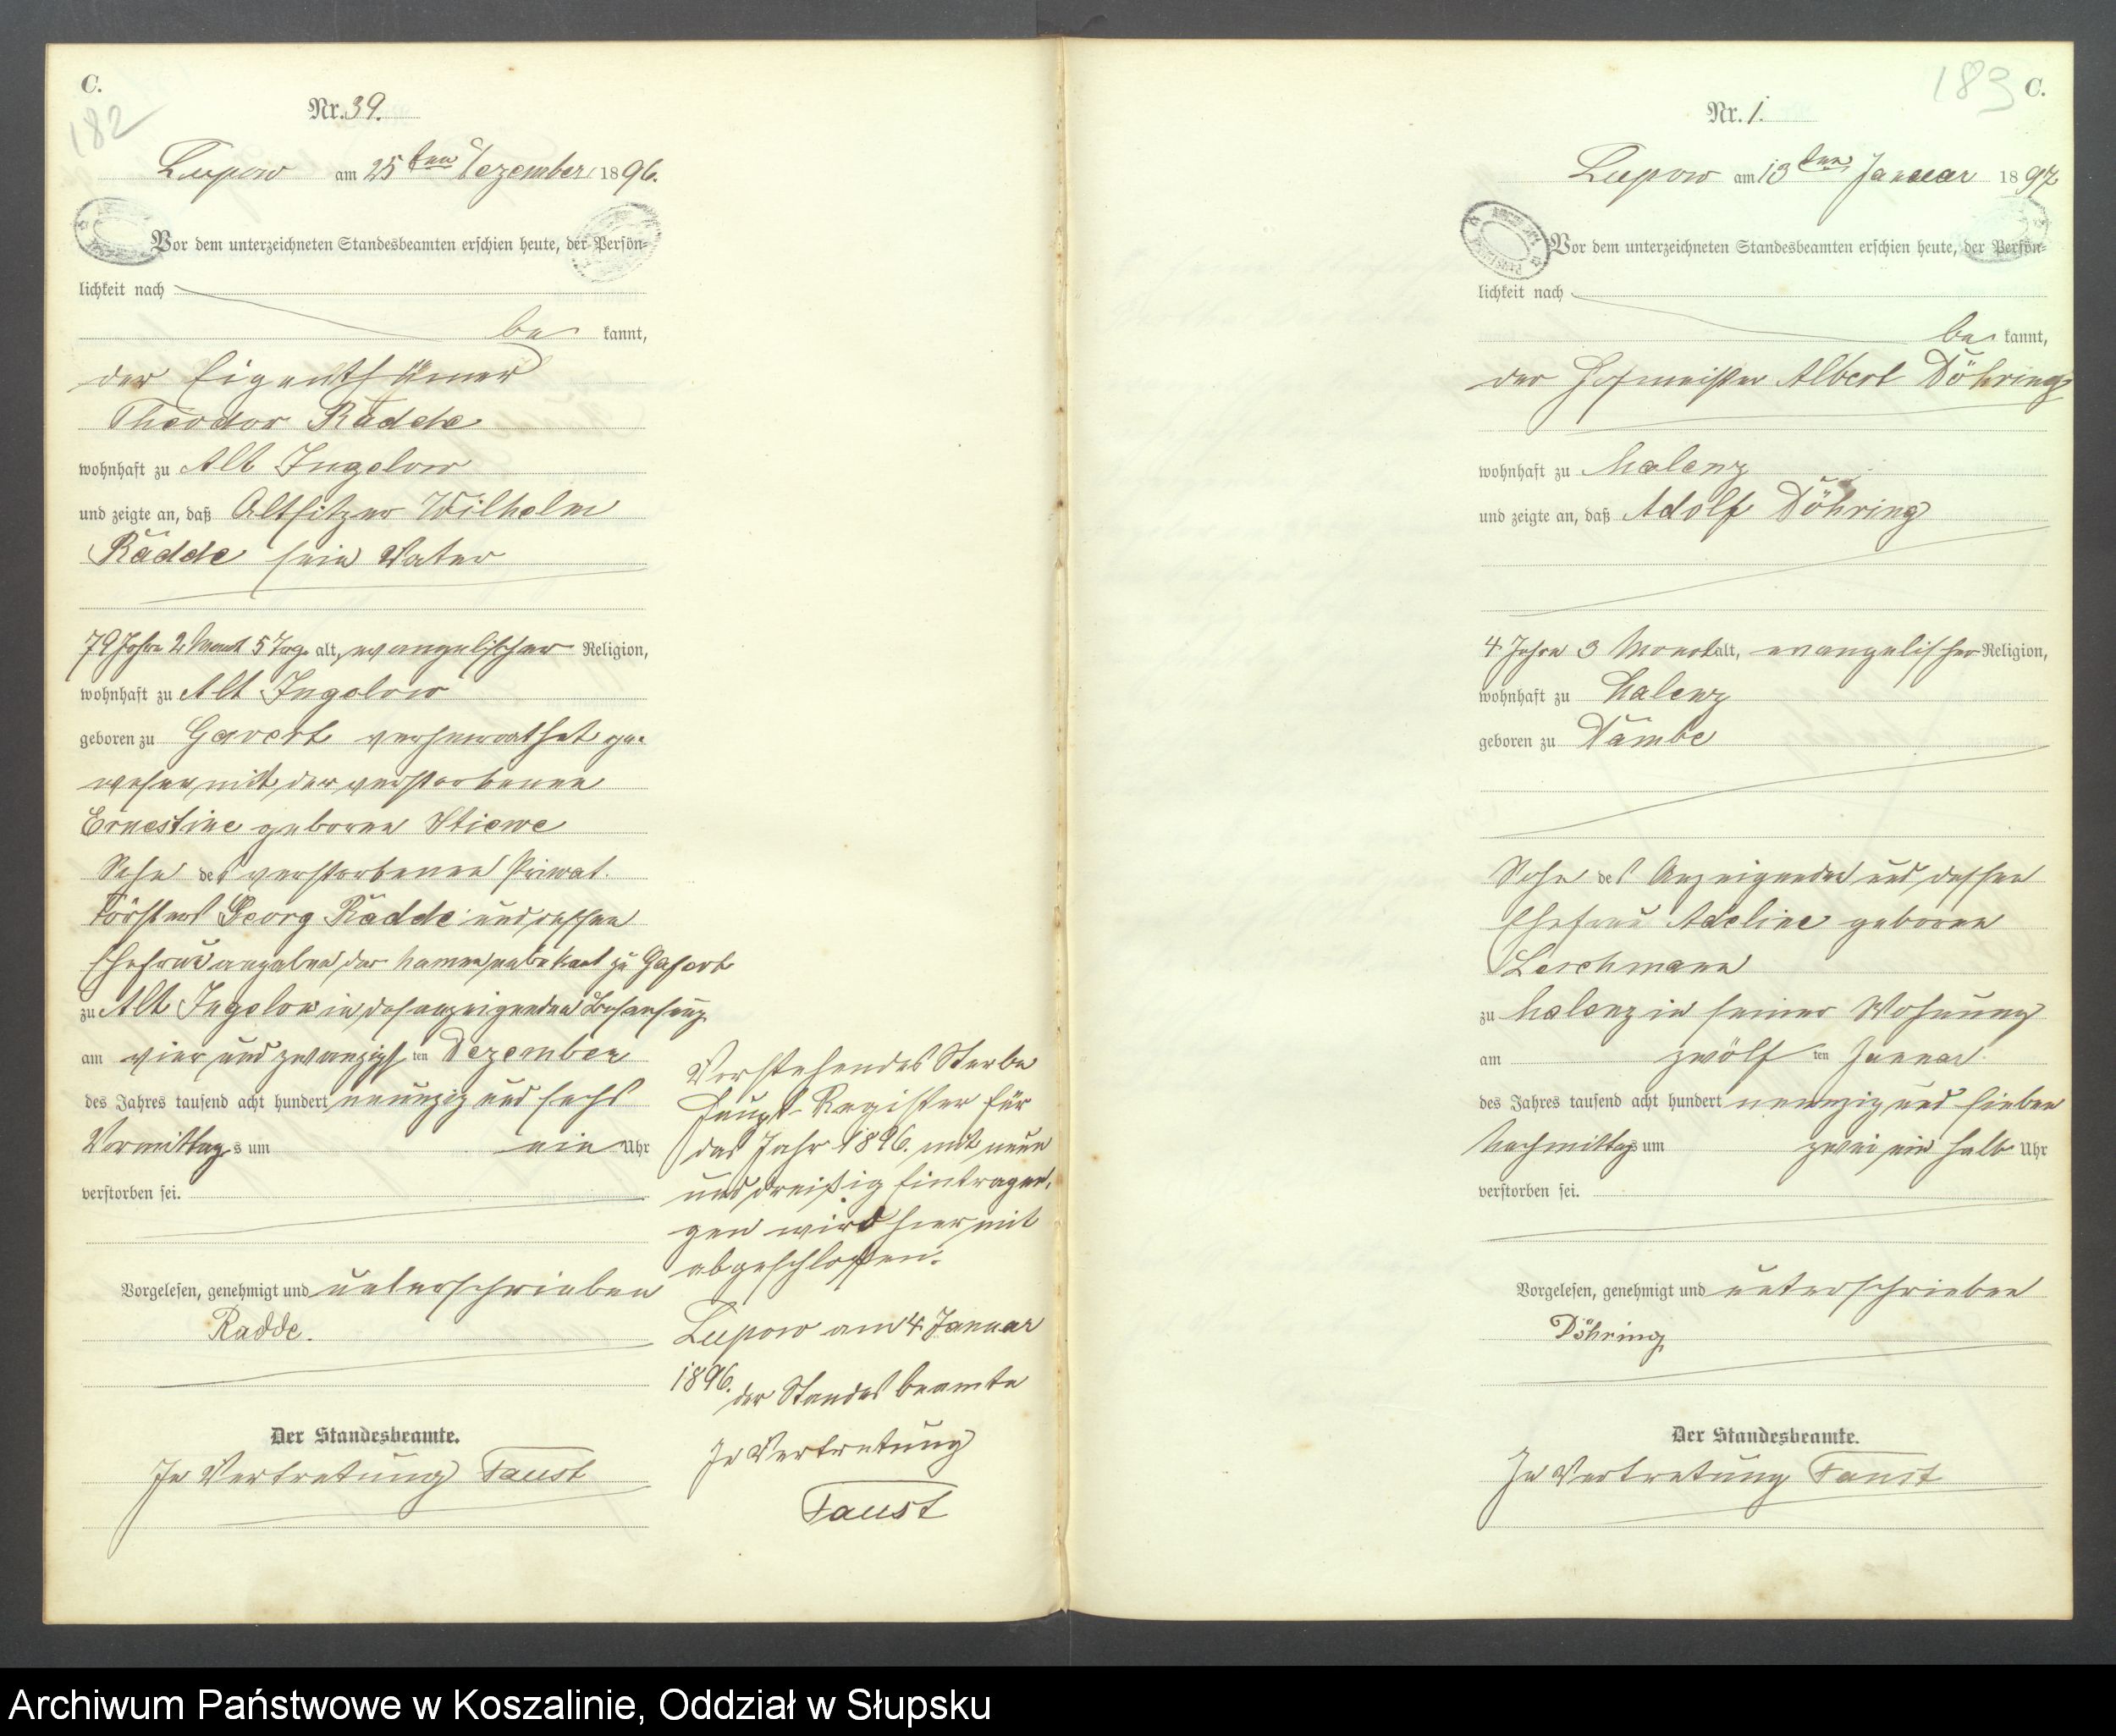 C.
182
Nr. 39.
Lupow am 25ten Dezember 1896.
Vor dem unterzeichneten Standesbeamten erschien heute, der Persön-
lichkeit nach
be kannt,
der Eigenthümer
Theodor Rädde
wohnhaft zu Alt Jugelow
und zeigte an, daß Altsitzer Wilhelm
Rädde sein Vater
79 Jahre 2 Monat 5 Tage alt, evangelischer Religion,
wohnhaft zu Alt Jugelow
geboren zu verheirathet ge-
wesen mit der verstorbenen
Ernestine geboren Stiewe
Sohn des verstorbenen Privat.
Försters Georg Rädde und dessen
Ehefrau angeben der Namen unbekant zu
zu Alt Jugelow in des anzeigenden Behausung
am vier und zwanzigsten Dezember
des Jahres tausend acht hundert neunzig und sechs
Vormittags um ein Uhr
verstorben sei.
Vorgelesen, genehmigt und unterschrieben
Radde.
Der Standesbeamte.
In Vertretung Faust
Vorstehendes Sterbe
Haupt-Register für
das Jahr 1896. mit neun
und dreißig Eintragun-
gen wird hiermit
abgeschlossen.
Lupow am 4 Januar
1896.
der Standesbeamte
In Vertretung
Faust
183 C.
Nr. 1.
Lupow am 13ten Januar 1897
Vor dem unterzeichneten Standesbeamten erschien heute, der Persön-
lichkeit nach
be kannt,
der Hofmeister Albert Döhring
wohnhaft zu Malenz
und zeigte an, daß Adolf Döhring
4 Jahre 3 Monat alt, evangelischer Religion,
wohnhaft zu Malenz
geboren zu Dambe
Sohn des Anzeigenden und dessen
Ehefrau Adeline geboren
Lerchmann
zu Malenz in seiner Wohnung
am zwölf ten Januar
des Jahres tausend acht hundert neunzig und sieben
Nachmittags um zwei ein halb Uhr
verstorben sei.
Vorgelesen, genehmigt und unterschrieben
Döhring
Der Standesbeamte.
In Vertretung Faust
Archiwum Państwowe w Koszalinie, Oddział w Słupsku